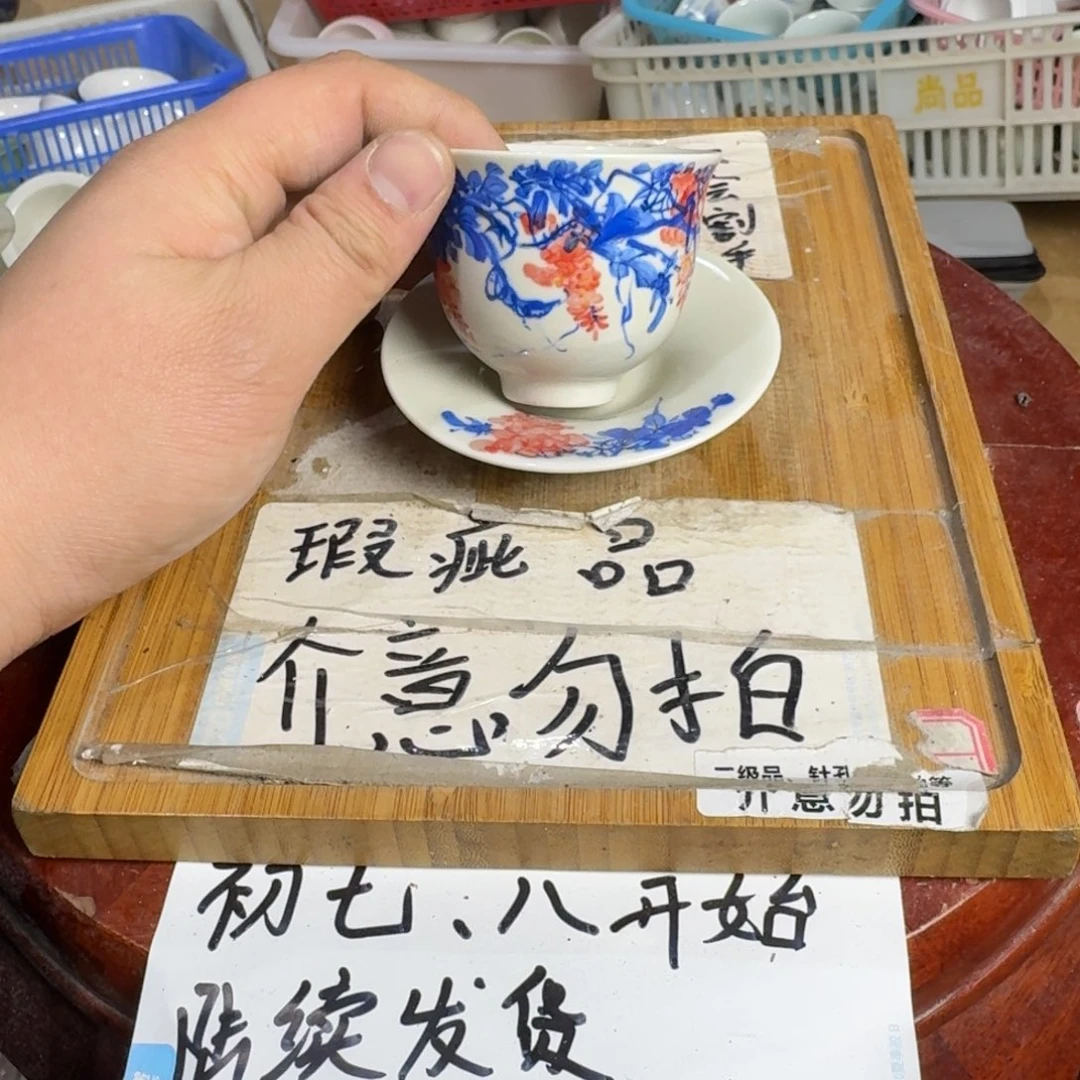 尚品
割手
瑕疵品
介意勿拍
二级品、针孔
介意勿拍
初七、八开始
陆续发货